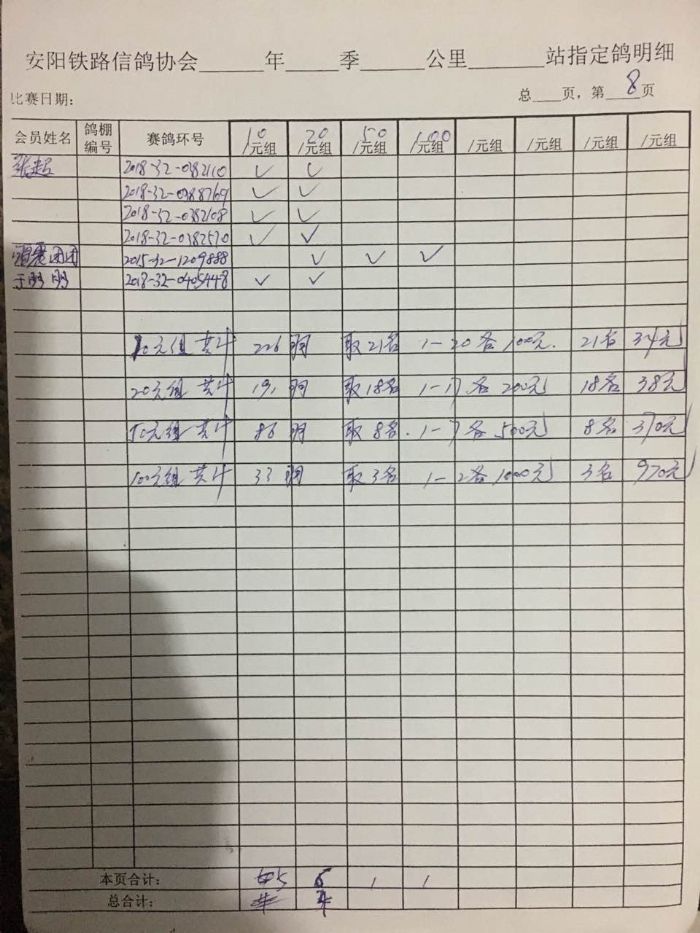 安阳铁路信鸽协会______年_____季_____公里_______站指定鸽明细
比赛日期： 总____页，第8页
会员姓名 鸽棚编号 赛鸽环号 10/元组 20/元组 50/元组 100/元组 /元组 /元组 /元组 /元组
张超 2018-32-0382110 ✓ ✓
2018-32-0388769 ✓ ✓
2018-32-0382108 ✓ ✓
2018-32-0382570 ✓ ✓
团团 2015-32-1209888 ✓ ✓ ✓
于明明 2018-32-0405448 ✓ ✓
10元组 共计 226 羽 取21名 1-20各100元. 21名 34元
20元组 共计 191 羽 取18名 1-17各200元 18名 38元
50元组 共计 86 羽 取8名. 1-7各500元 8名 370元
100元组 共计 33 羽 取3名 1-2各1000元 3名 970元
本页合计： 5 6 1 1
总合计：